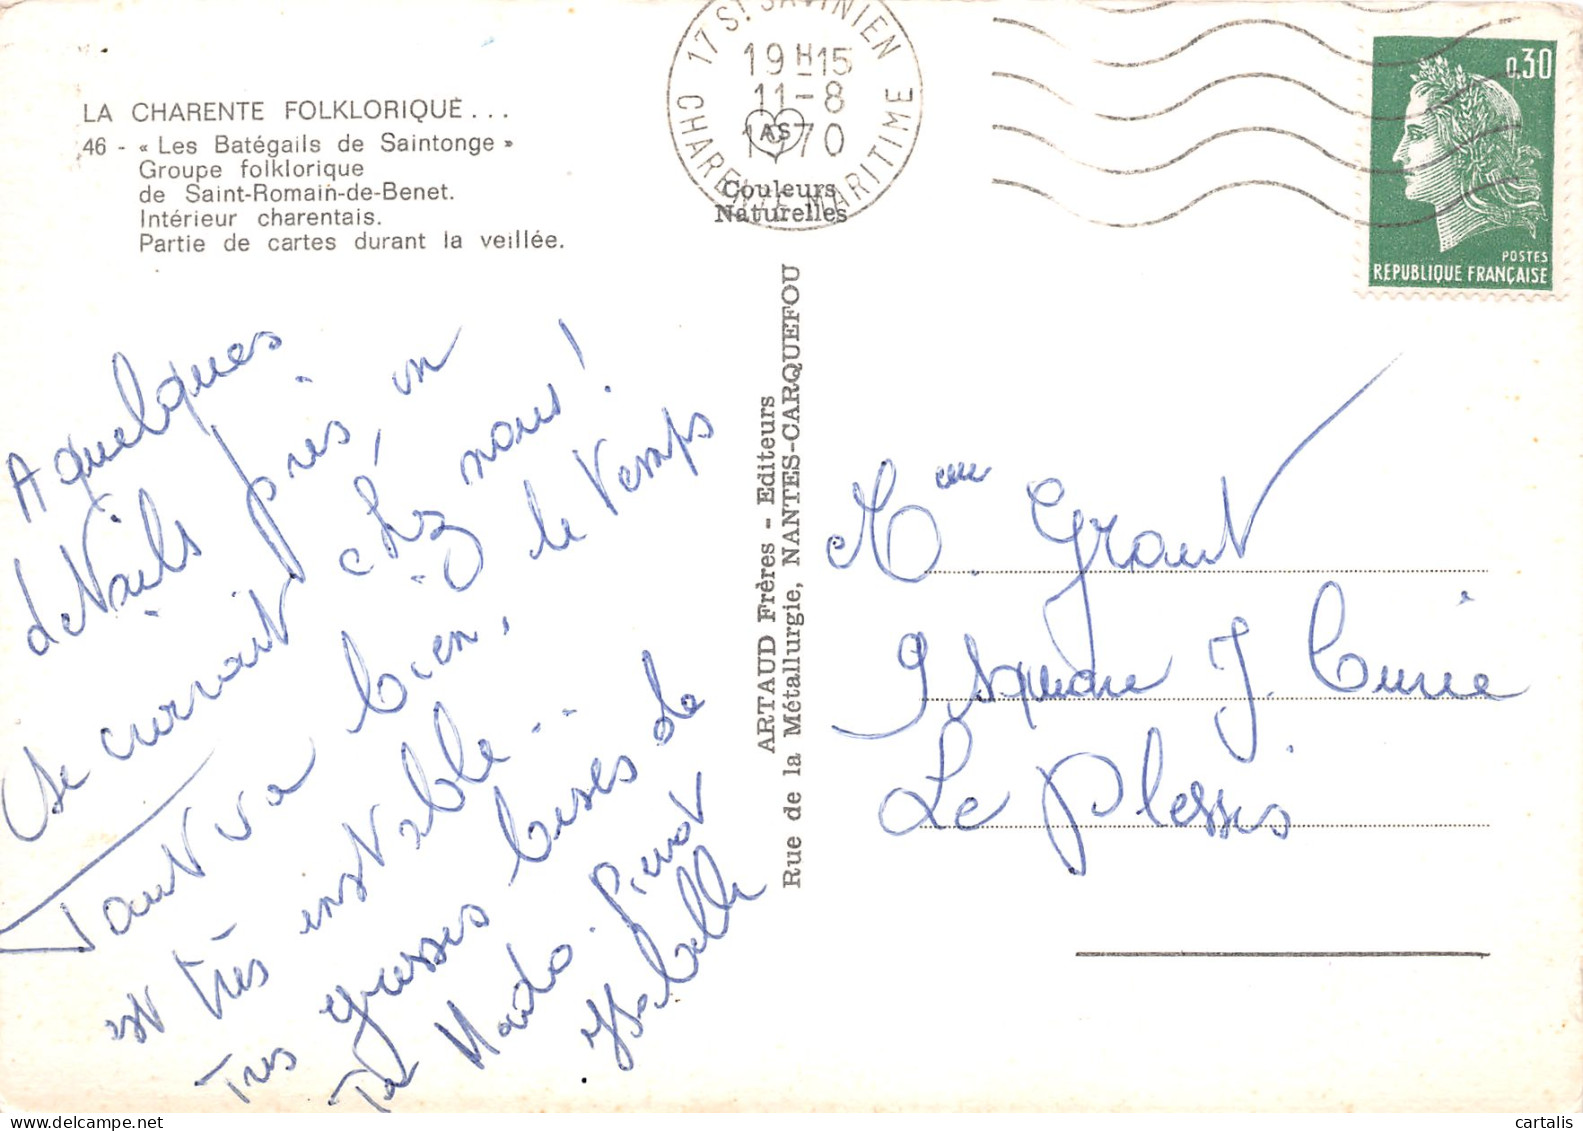 LA CHARENTE FOLKLORIQUE...
46 - « Les Batégails de Saintonge »
Groupe folklorique
de Saint-Romain-de-Benet.
Intérieur charentais.
Partie de cartes durant la veillée.
17 ST SAVINIEN
19H15
11-8
1970
CHARENTE MARITIME
AS
Couleurs
Naturelles
0,30
POSTES
REPUBLIQUE FRANÇAISE
ARTAUD Frères - Editeurs
Rue de la Métallurgie, NANTES-CARQUEFOU
A quelques
détails près, on
se croirait chez nous!
Tout va bien, le temps
est très instable...
Très grosses bises de
Mado. Pierrot
Isabelle
Mme Graut
9 square J. Curie
Le Plessis
cartalis